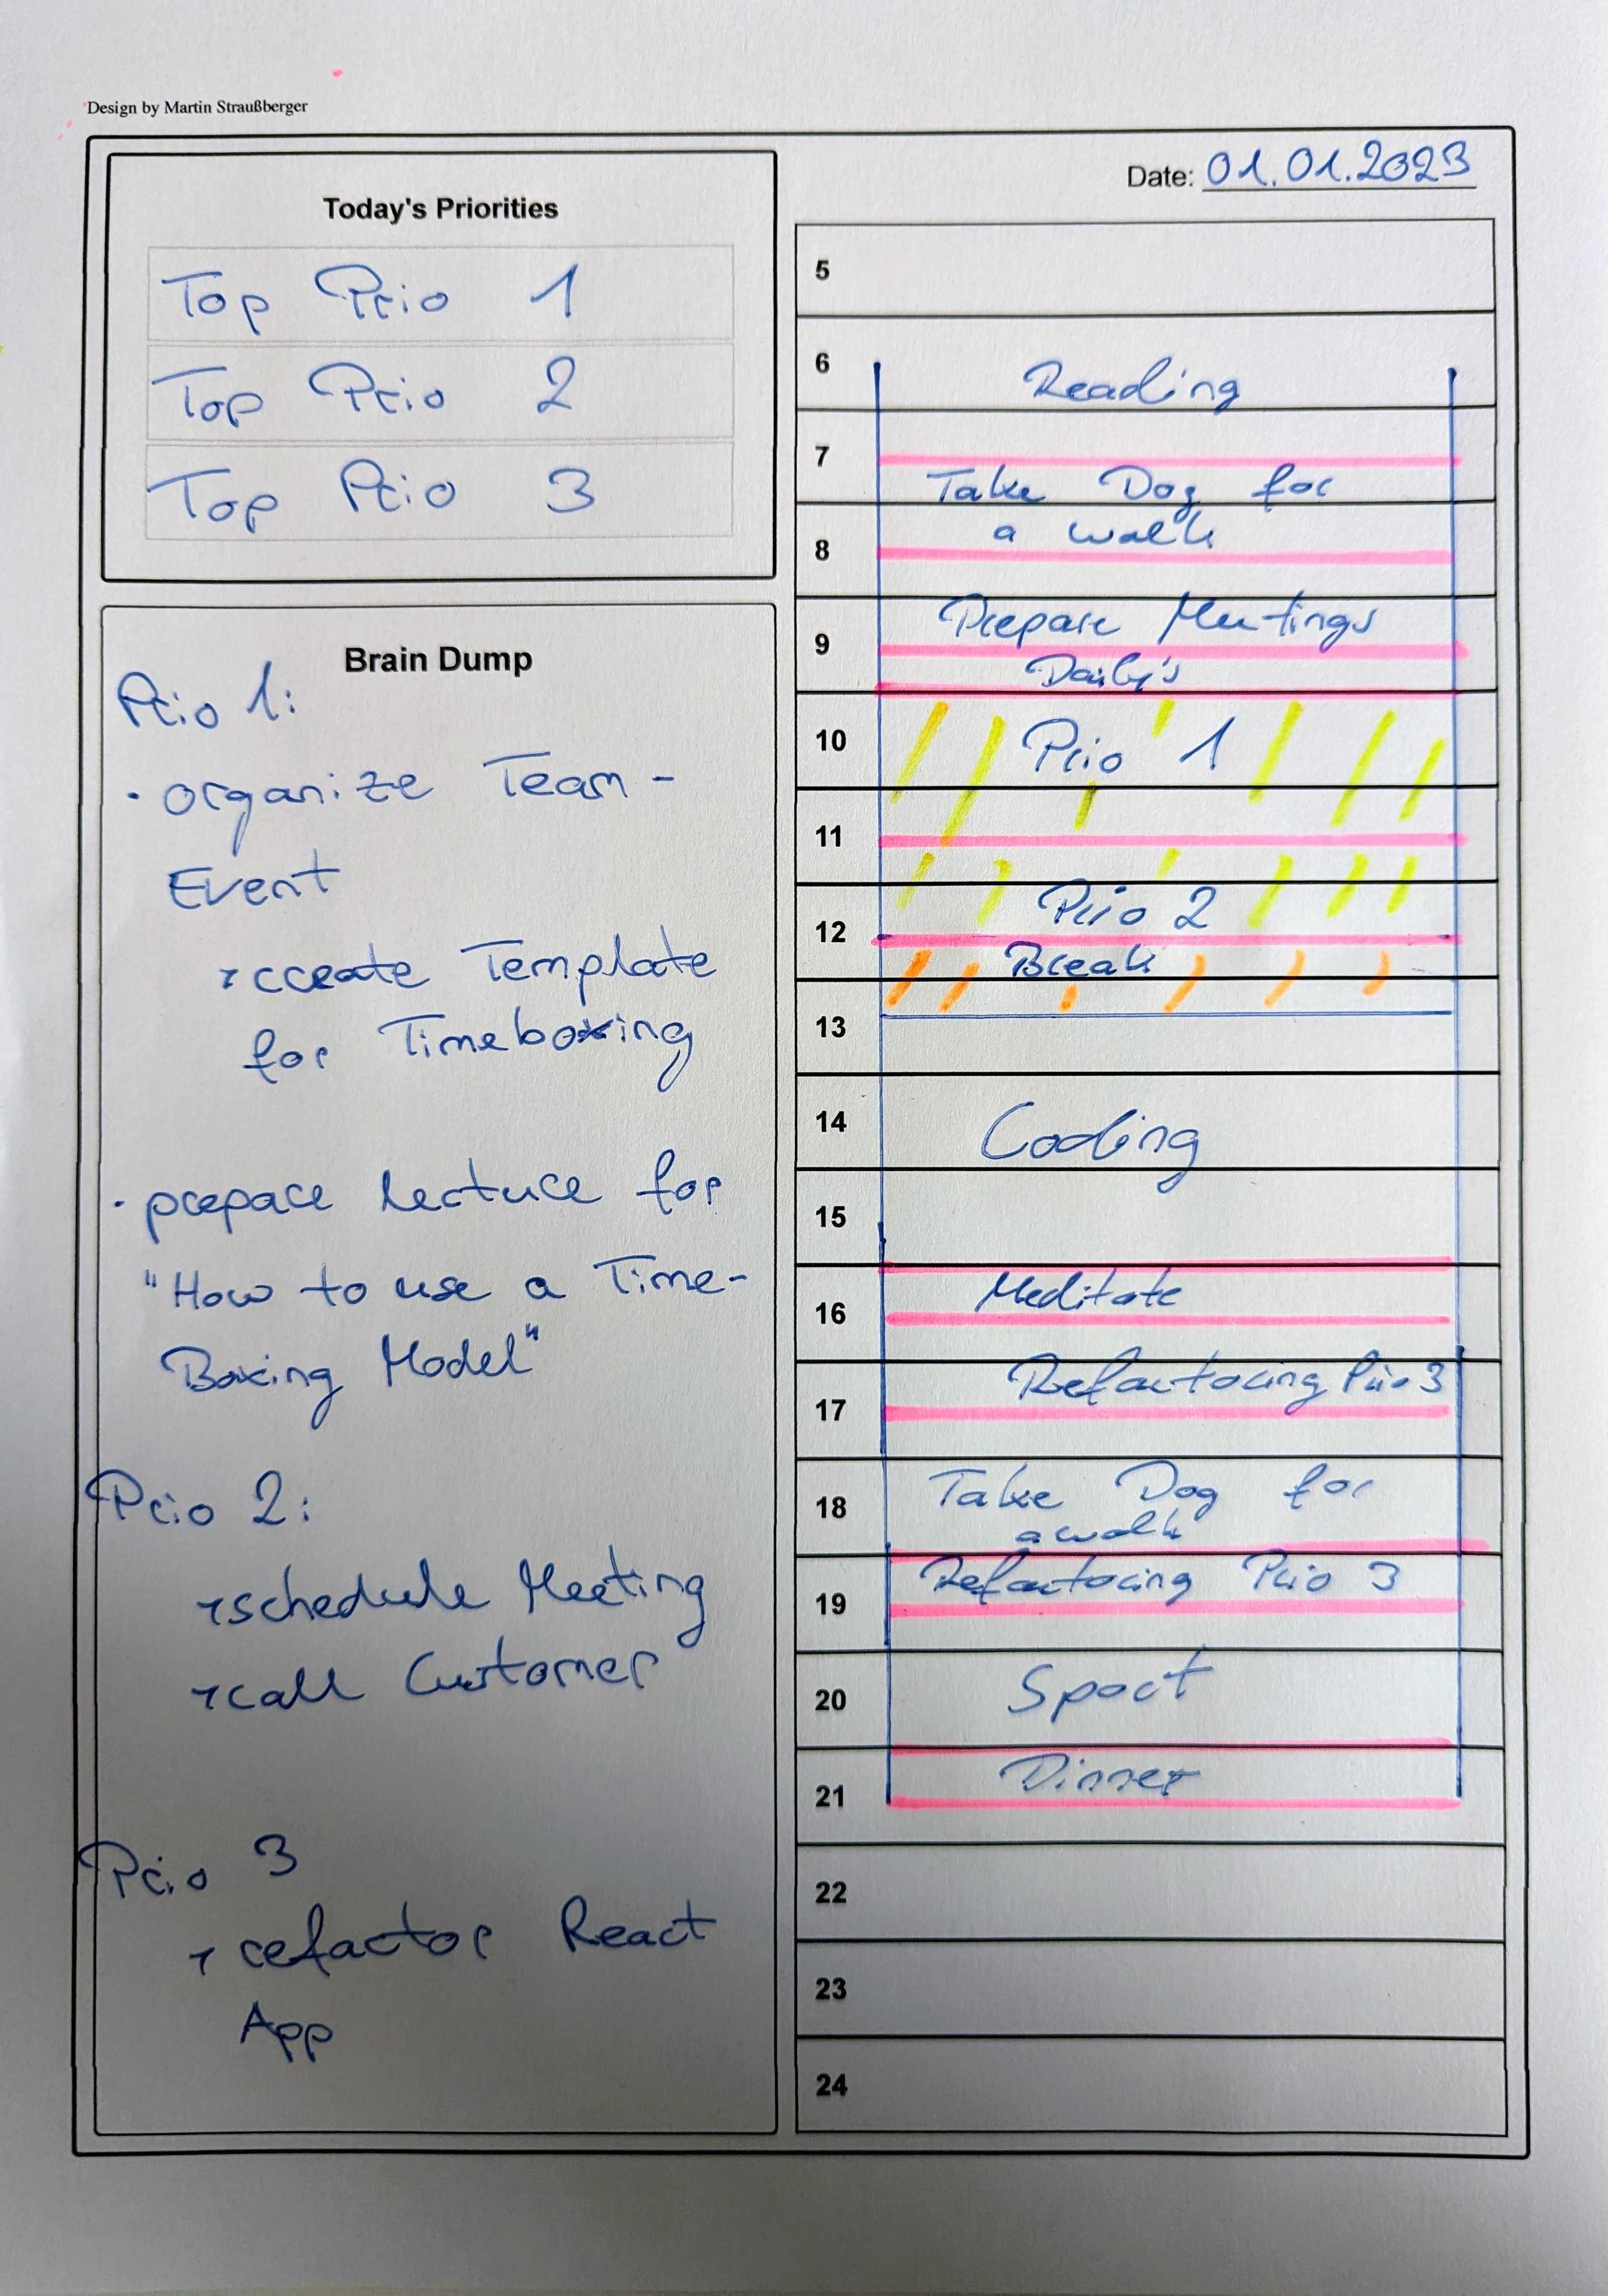 Design by Martin Straußberger
Today's Priorities
Top Prio 1
Top Prio 2
Top Prio 3
Brain Dump
Prio 1:
· organize Team-
Event
create Template
for Timeboxing
· prepare Lecture for
"How to use a Time-
Boxing Model"
Prio 2:
schedule Meeting
call Customer
Prio 3
refactor React
App
Date: 01.01.2023
5
6 Reading
7
Take Dog for
a walk
8
Prepare Meetings
9
Daily's
10 Prio 1
11
Prio 2
12
Break
13
14 Coding
15
Meditate
16
Refactoring Prio 3
17
Take Dog for
18
a walk
Refactoring Prio 3
19
20 Sport
Dinner
21
22
23
24